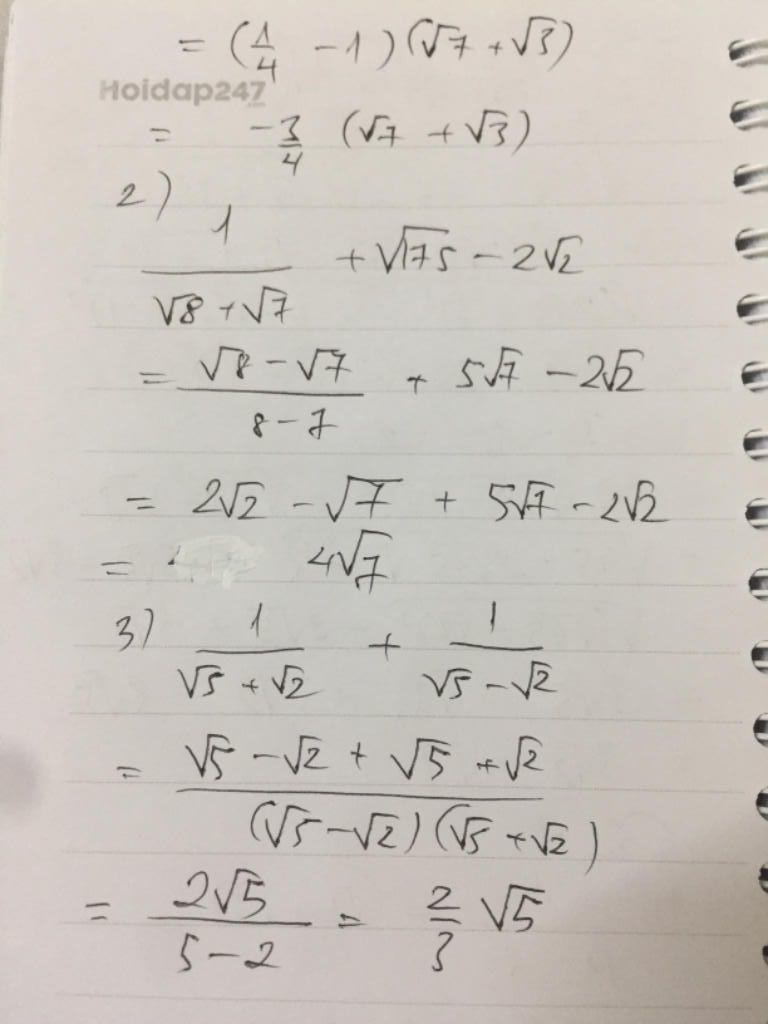 = (1/4 - 1)(√7 + √3)
Hoidap247
= -3/4 (√7 + √3)
2)
1/(√8 + √7) + √175 - 2√2
= (√8 - √7)/(8 - 7) + 5√7 - 2√2
= 2√2 - √7 + 5√7 - 2√2
= 4√7
3) 1/(√5 + √2) + 1/(√5 - √2)
= (√5 - √2 + √5 + √2)/((√5 - √2)(√5 + √2))
= 2√5/(5 - 2) = 2/3 √5